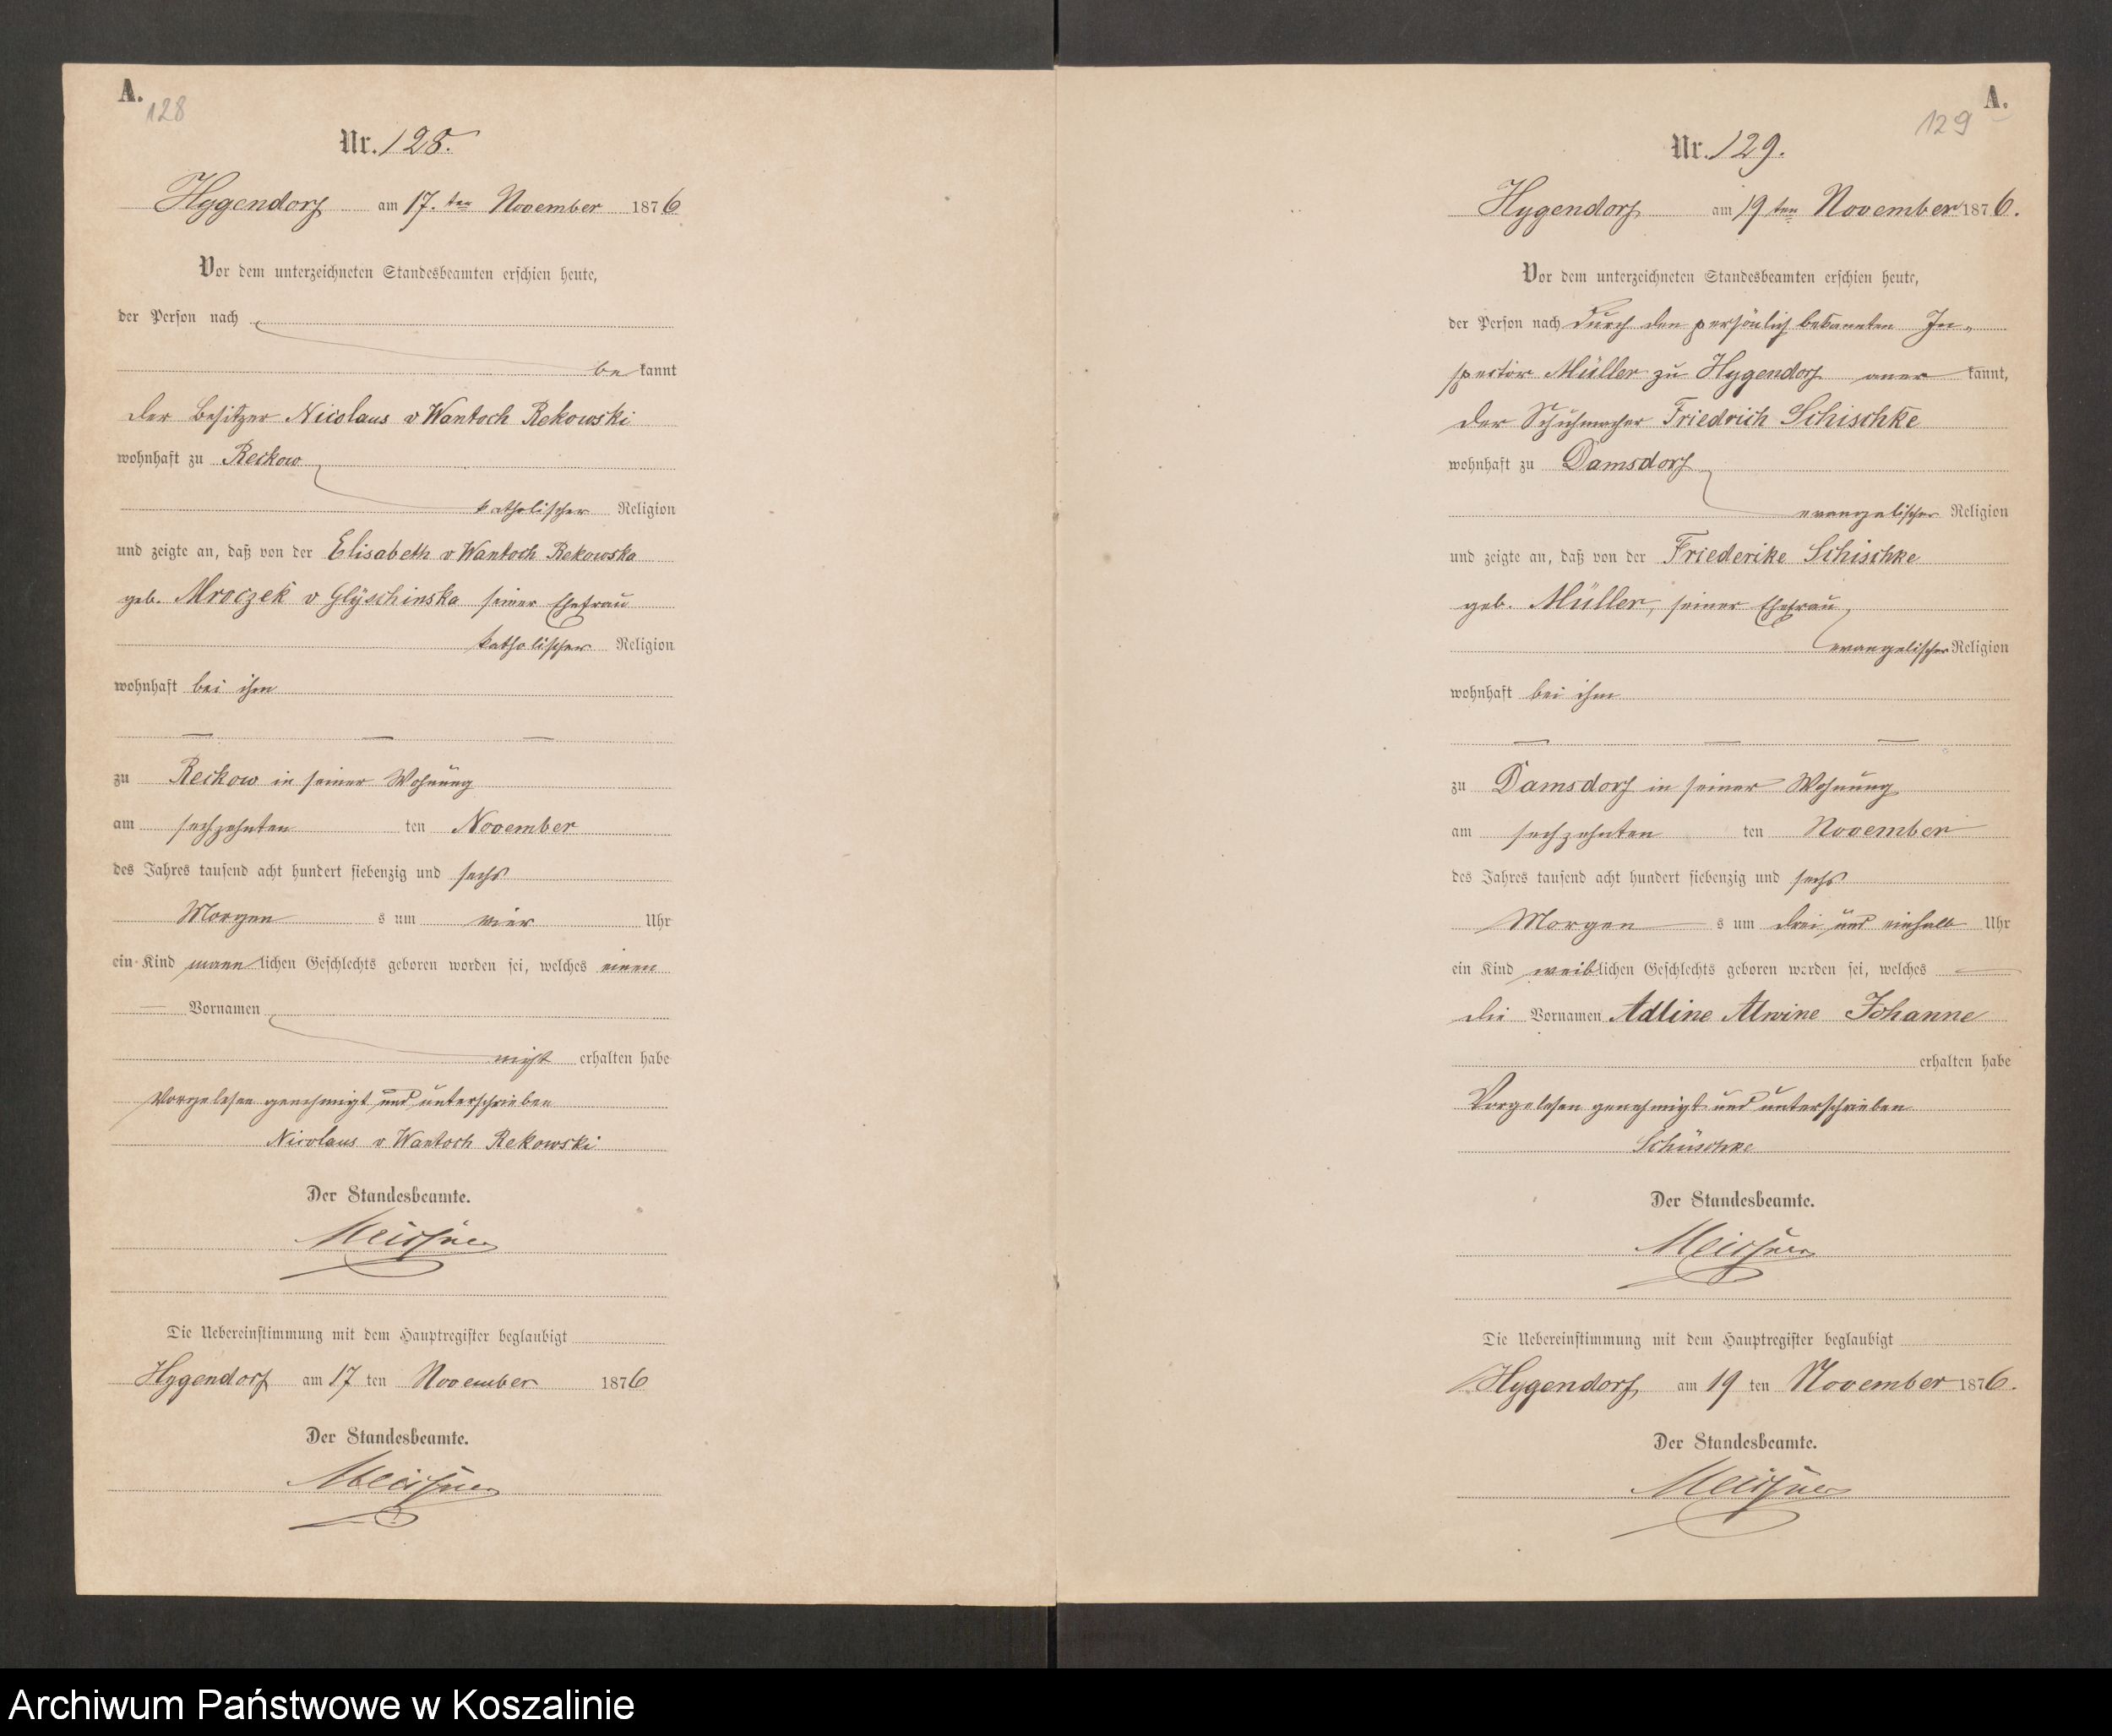 A.
128
Nr. 128.
Hygendorf am 17. ten November 1876
Vor dem unterzeichneten Standesbeamten erschien heute,
der Person nach
be kannt
der Besitzer Nicolaus v Wantoch Rekowski
wohnhaft zu Reckow
katholischer Religion
und zeigte an, daß von der Elisabeth v Wantoch Rekowska
geb. Mroczek v Glÿschinska seiner Ehefrau
katholischer Religion
wohnhaft bei ihm
— — —
zu Reckow in seiner Wohnung
am sechzehnten ten November
des Jahres tausend acht hundert siebenzig und sechs
Morgen s um vier Uhr
ein Kind mann lichen Geschlechts geboren worden sei, welches einen
— Vornamen
nicht erhalten habe
Vorgelesen genehmigt und unterschrieben
Nicolaus v Wantoch Rekowski
Der Standesbeamte.
Meissner
Die Uebereinstimmung mit dem Hauptregister beglaubigt
Hygendorf am 17 ten November 1876
Der Standesbeamte.
Meissner
A.
129
Nr. 129.
Hygendorf am 19 ten November 1876.
Vor dem unterzeichneten Standesbeamten erschien heute,
der Person nach durch den persönlich bekannten In-
spector Müller zu Hygendorf aner kannt,
der Schuhmacher Friedrich Schischke
wohnhaft zu Damsdorf
evangelischer Religion
und zeigte an, daß von der Friederike Schischke
geb. Müller, seiner Ehefrau,
evangelischer Religion
wohnhaft bei ihm
— — —
zu Damsdorf in seiner Wohnung
am sechzehnten ten November
des Jahres tausend acht hundert siebenzig und sechs
Morgen s um drei und einhalb Uhr
ein Kind weiblichen Geschlechts geboren worden sei, welches —
die Vornamen Adline Alwine Johanne
erhalten habe
Vorgelesen genehmigt und unterschrieben
Schüschke
Der Standesbeamte.
Meissner
Die Uebereinstimmung mit dem Hauptregister beglaubigt
Hygendorf, am 19 ten November 1876.
Der Standesbeamte.
Meissner
Archiwum Państwowe w Koszalinie